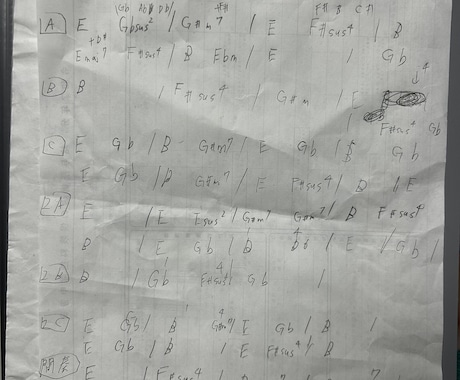 Gb Ab B Db / F# B C#
A E Gbsus² / G#m⁷ / E F#sus⁴ / B
Emaj⁷ F#sus⁴ / B Ebm / E / Gb
B B / F#sus⁴ / G#m / E
F#sus⁴ Gb
C E Gb / B G#m⁷ / E Gb / Gb
E Gb / B G#m⁷ / E F#sus⁴ / B / E
2A E / E Esus² / G#m⁷ G#m⁷ / B F#sus⁴
B / E Gb / B / E / Gb /
2B B / Gb F#sus⁴ Gb /
2C E Gb / B G#m⁷ / E Gb / B /
E Gb / B / E F#sus⁴ / B
E / F#sus⁴